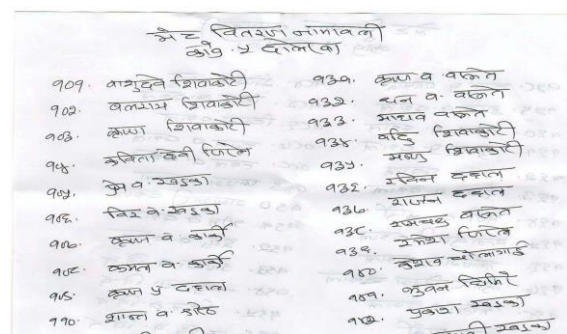 भेट वितरण नामावली
काभ्रे . ५ दोलखा
१०१. वाशुदेव शिवाकोटी
१०२. वलराम शिवाकोटी
१०३. कृष्ण शिवाकोटी
१०४. कविता देवी जिरेल
१०५. प्रेम व. खड्का
१०६. विर व. खड्का
१०७. कृष्ण व. कार्की
१०८. कमल व. कार्की
१०९. कृष्ण प्र दहाल
११०. शान्त व.
१३१. कृष्ण व वस्नेत
१३२. धन व. वस्नेत
१३३. माधव वस्नेत
१३४. शिवाकोटी
१३५. शिवाकोटी
१३६. रविन दहाल
१३७. राजन दहाल
१३८. वस्नेत
१३९. रमेश जिरेल
१४०. केशव चौलागाई
१४१. भुवन घिमिरे
१४२. प्रकाश खड्का
खड्का